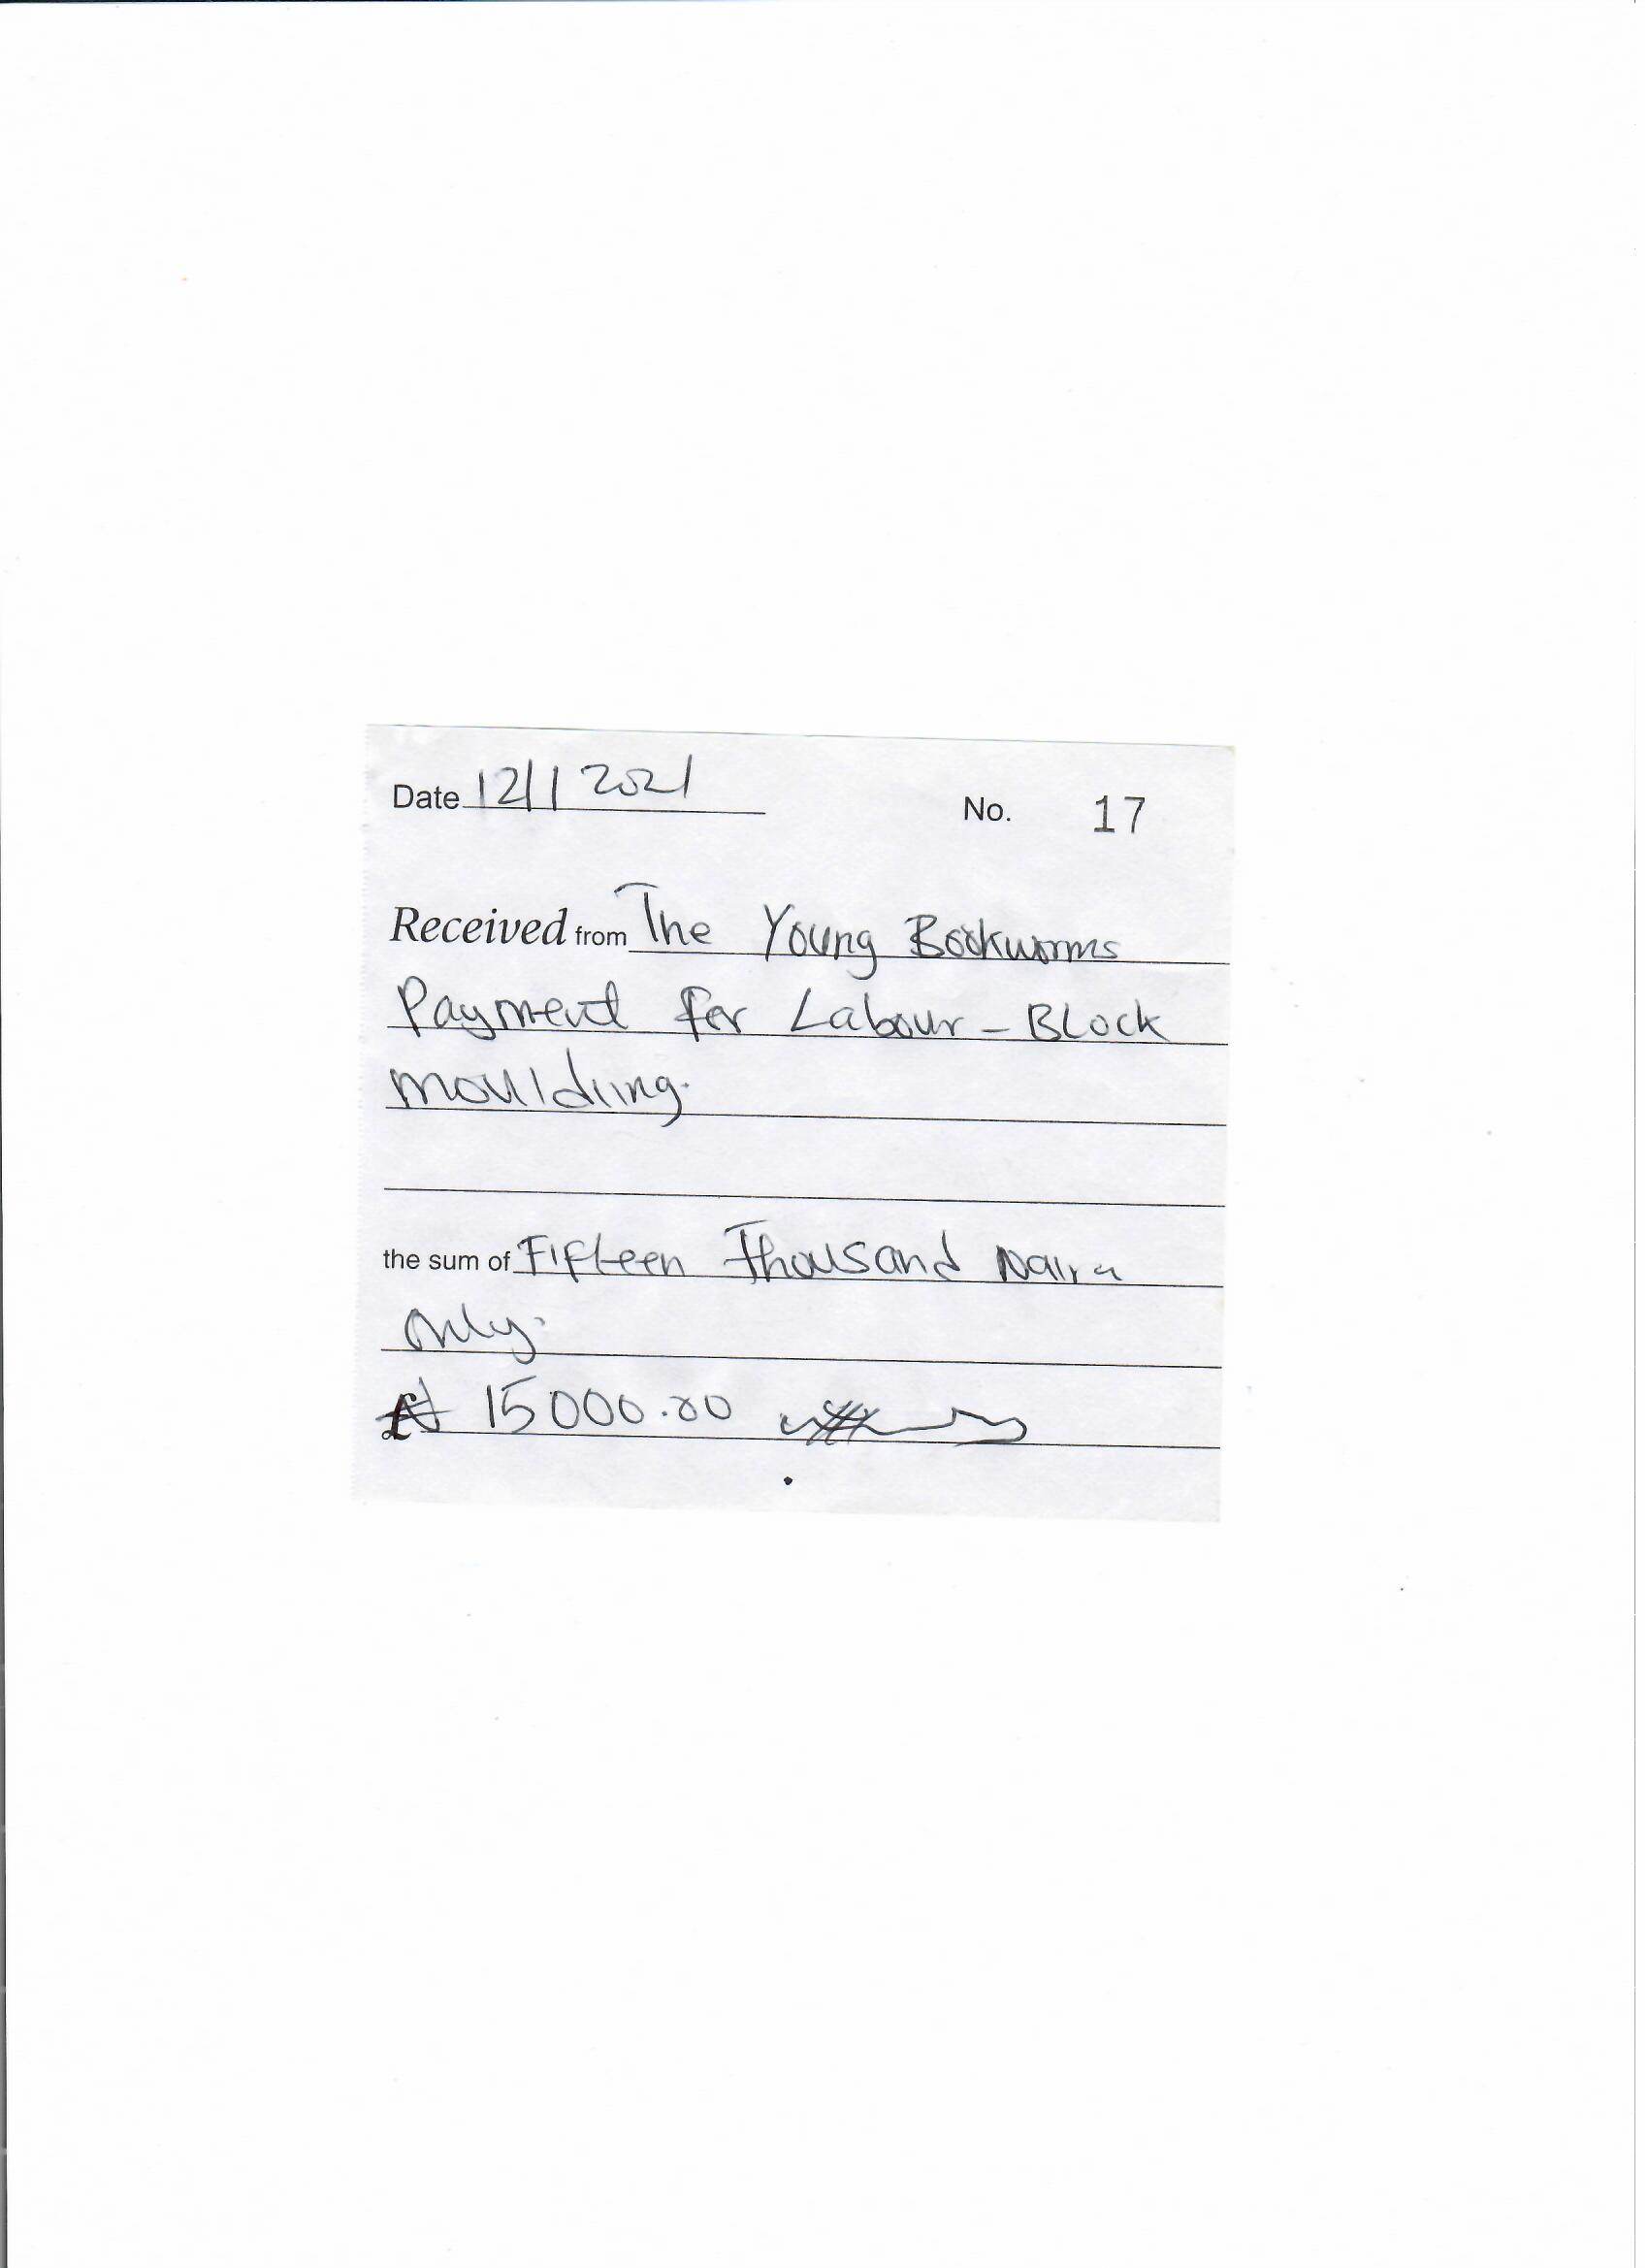 Date 12/1 2021 No. 17
Received from The Young Bookworms
Payment for Labour - Block
moulding.
the sum of Fifteen Thousand Naira
Only.
₦ 15000.00